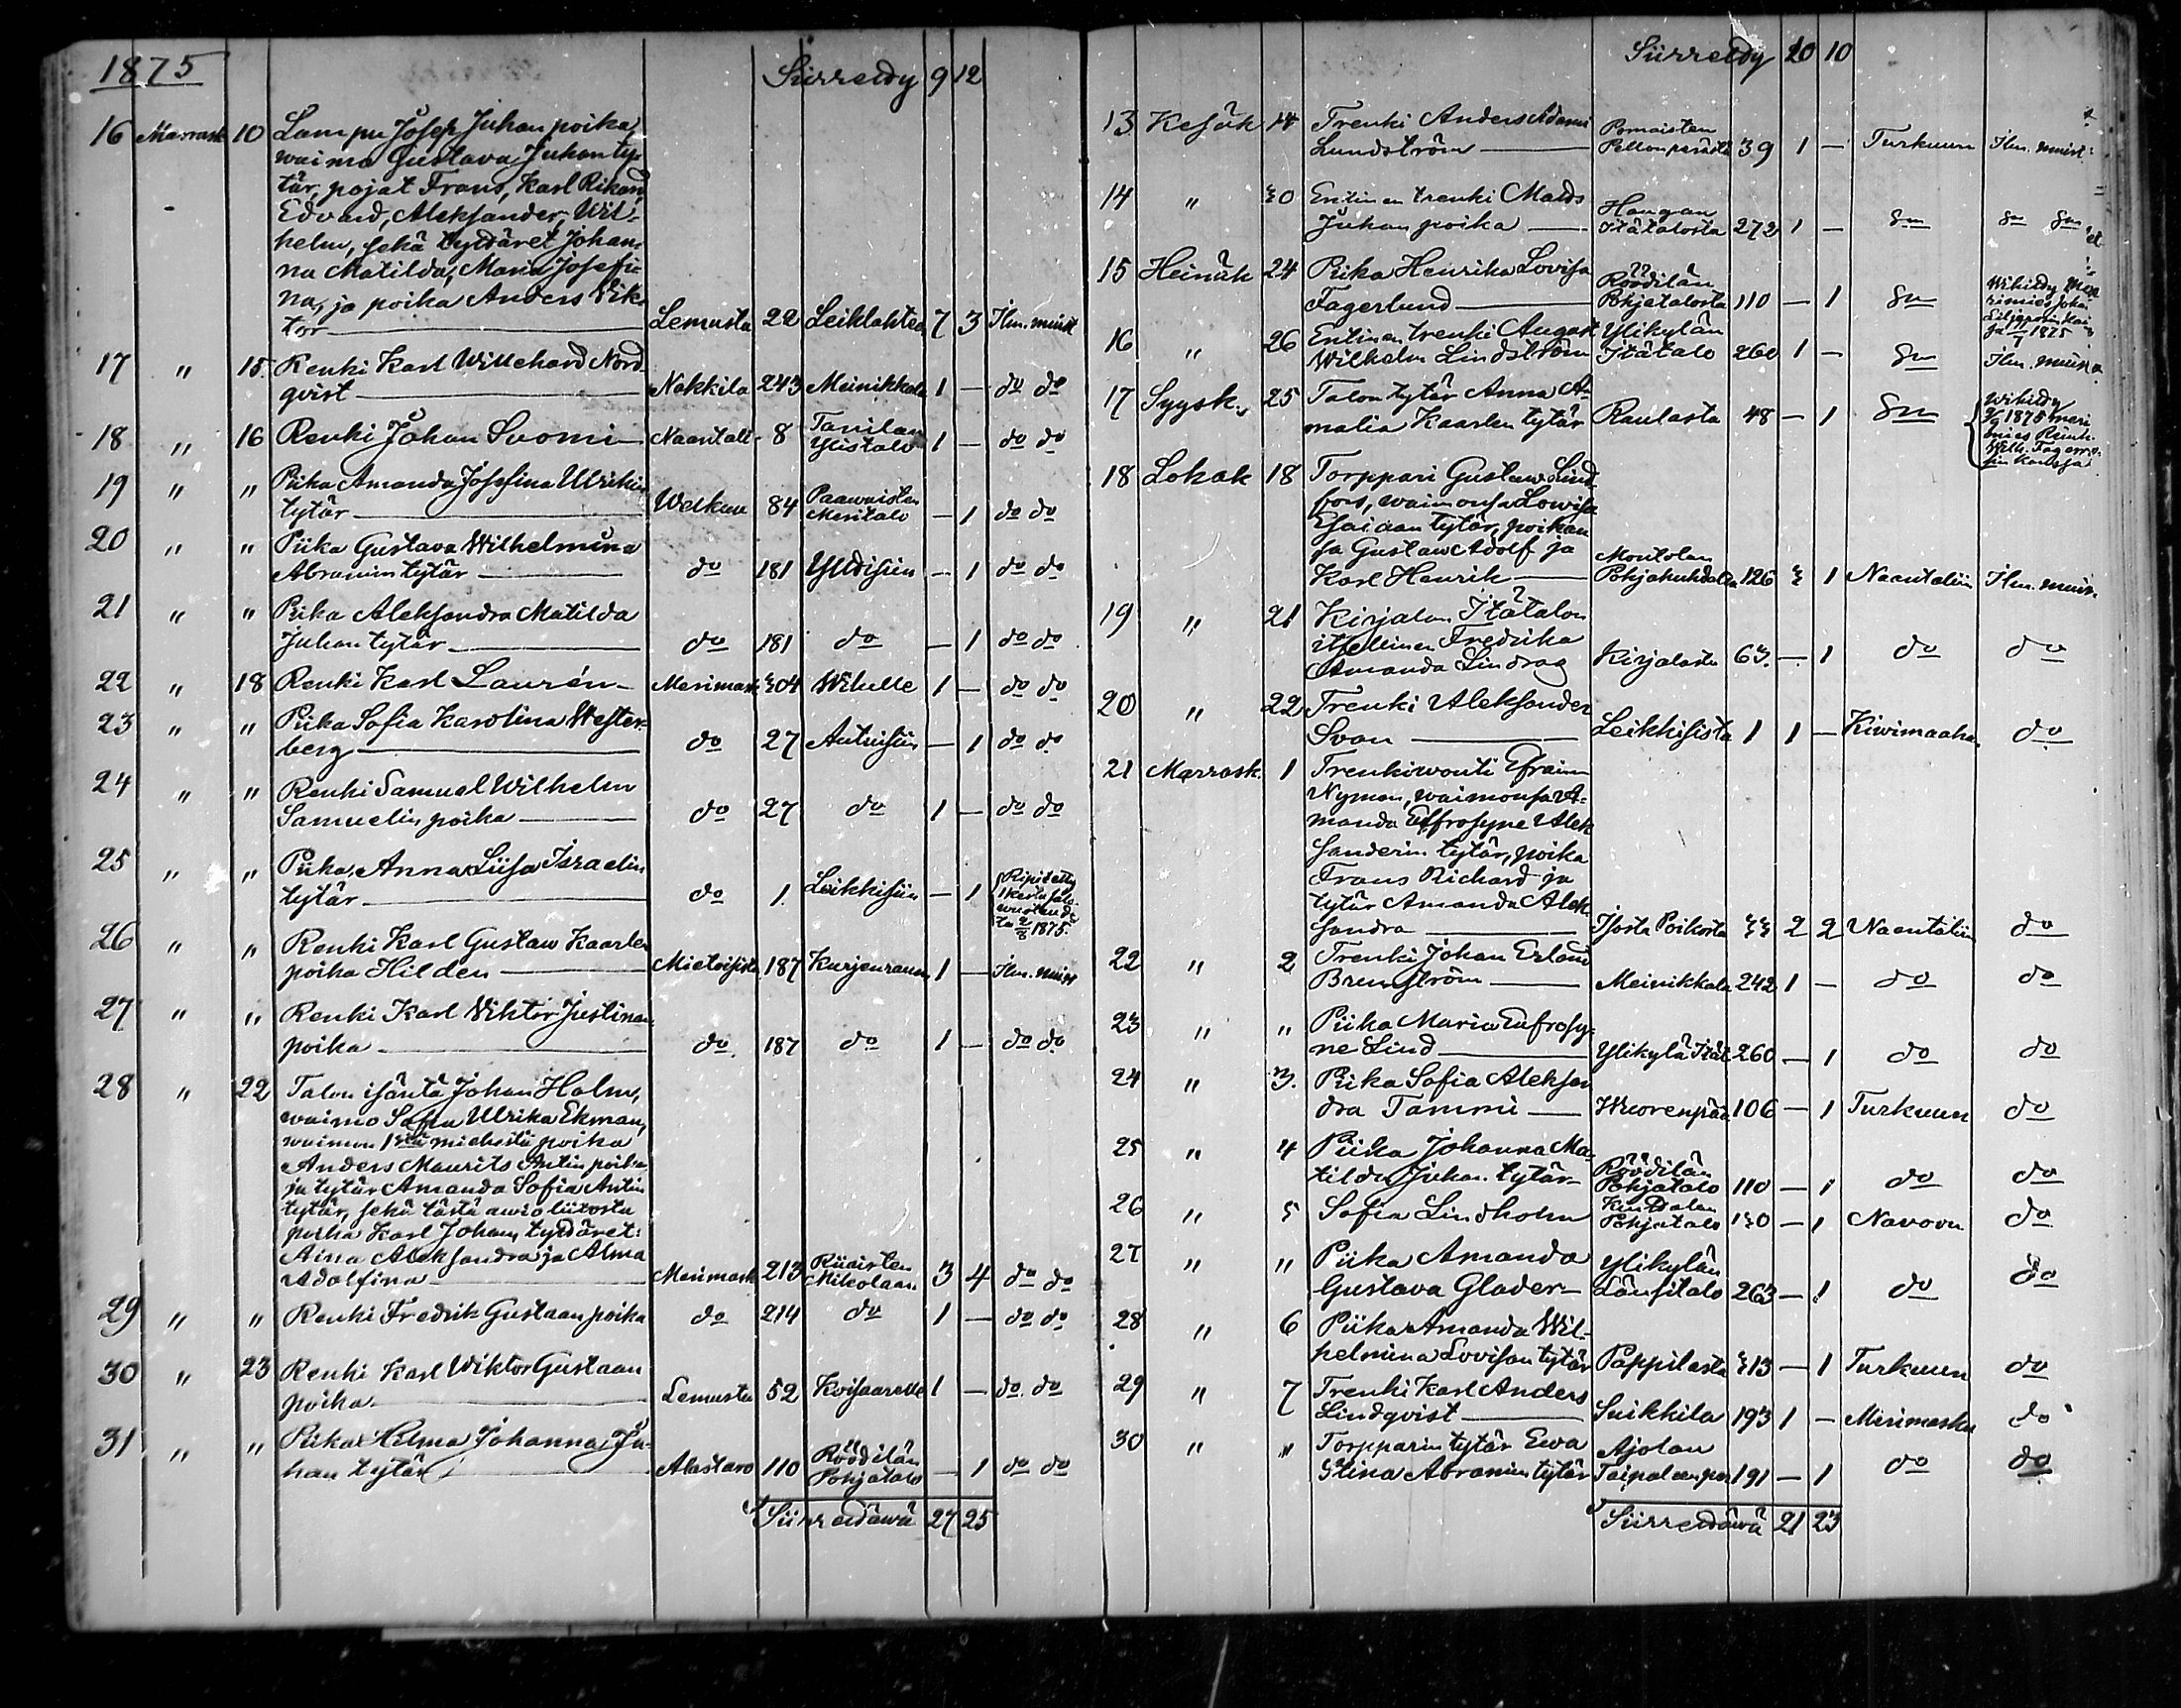 1875
Siirretty 9 12
16 Marrask 10 Lampu Josef Juhan poika,
waimo Gustava Juhan ty-
tär, pojat Frans, Karl Rikard,
Edvard, Aleksander, Wil-
helm, sekä tyttäret Johan-
na Matilda, Maria Josefi-
na, ja poika Anders Wik-
tor Lemusta 22 Leiklahteen 7 3 Ilm. muist
17 " 15. Renki Karl Willehard Nord-
qvist Nakkila 243 Meinikkala 1 — do do
18 " 16 Renki Johan Suomi Naantali 8 Tanilan
Ylistalo 1 — do do
19 " " Piika Amanda Josefina Ulrikin
tytär Welkua 84 Paawaisten
Meritalo — 1 do do
20 " " Piika Gustava Wilhelmina
Abramin tytär do 181 Ylldisiin — 1 do do
21 " " Piika Aleksandra Matilda
Juhan tytär do 181 do — 1 do do
22 " 18 Renki Karl Laurén Merimask 304 Wihulle 1 — do do
23 " " Piika Sofia Karolina Wester-
berg do 27 Autuisiin — 1 do do
24 " " Renki Samuel Wilhelm
Samuelin poika do 27 do 1 — do do
25 " " Piika Anna Liisa Israelin
tytär do 1. Leikkisiin — 1
1875.
26 " " Renki Karl Gustaw Kaarlen
poika Hilden Mietoisista 187 Kurjenrauma 1 — Ilm. muist
27 " " Renki Karl Wiktor Justinan
poika do 187 do 1 — do do
28 " 22 Talon isäntä Johan Holm,
waimo Sofia Ulrika Ekman,
waimon 1sestä miehestä poika
Anders Maurits Antin poika
ja tytär Amanda Sofia Antin
tytär, sekä tästä awioliitosta
poika Karl Johan, tyttäret:
Aina Aleksandra ja Alma
Adolfina Merimask 213 Riiaisten
Mikolaan 3 4 do do
29 " " Renki Fredrik Gustaan poika do 214 do 1 — do do
30 " 23 Renki Karl Wiktor Gustaan
poika Lemusta 52 Koisaarelle 1 — do do
31 " " Piika Hilma Johanna Ju-
han tytär Alastaro 110 Röödilän
Pohjatalo — 1 do do
Siirrettäwä 27 25
Siirretty 20 10
13 Kesäk 14 Trenki Anders Adami
Lundström Pomaisten
Pellonperästä 39 1 — Turkuun Ilm. muist.
14 " 30 Entinen trenki Mats
Juhan poika Haugan
Itätalosta 272 1 — do do do
15 Heinäk 24 Piika Henrika Lovisa
Fagerlund Röödilän
Pohjatalosta 110 — 1 do Wihitty
1875
16 " 26 Entinen trenki August
Wilhelm Lindström Ylikylän
Itätalo 260 1 — do Ilm. muist.
17 Syysk. 25 Talon tytär Anna A-
malia Kaarlen tytär Raulasta 48 — 1 do Wihitty
1875 meri
mies
Wilh. Fagerro-
sin kanssa
18 Lokak 18 Torppari Gustaw Lind-
fors, waimonsa Lowisa
Esaiaan tytär, poikan-
sa Gustaw Adolf ja
Karl Henrik Montolan
126 3 1 Naantaliin Ilm. muis.
19 " 21 Kirjalan Itätalon
itsellinen Fredrika
Amanda Lindrog Kirjalasta 63. — 1 do do
20 " 22 Trenki Aleksander
Svan Leikkisista 1 1 — Kiwimaaha. do
21 Marrask. 1 Trenkiwouti Efraim
Nyman, waimonsa A-
manda Effrosyne Alek-
sanderin tytär, poika
Frans Richard ja
tytär Amanda Alek-
sandra Isosta Poikosta 33 2 2 Naantaliin do
22 " 2 Trenki Johan Erland
Brunström Meinikkala 242 1 — do do
23 " " Piika Maria Eufrosy-
ne Lind Ylikylä Ität 260 — 1 do do
24 " 3. Piika Sofia Aleksan-
dra Tammi Wuorenpää 106 — 1 Turkuun do
25 " 4 Piika Johanna Ma-
tilda Juhan tytär Röödilän
Pohjatalo 110 — 1 do do
26 " 5 Sofia Lindholm Kuttalan
Pohjatalo 130 — 1 Navoon do
27 " " Piika Amanda
Gustava Glader Ylikylän
Länsitalo 263 — 1 do do
28 " 6 Piika Amanda Wil-
helmina Lovisan tytär Pappilasta 313 — 1 Turkuun do
29 " 7 Trenki Karl Anders
Lindqvist Suikkila 193 1 — Merimasku do
30 " " Torpparin tytär Ewa
Stina Abramin tytär Ajolan
191 — 1 do do
Siirrettäwä 21 23